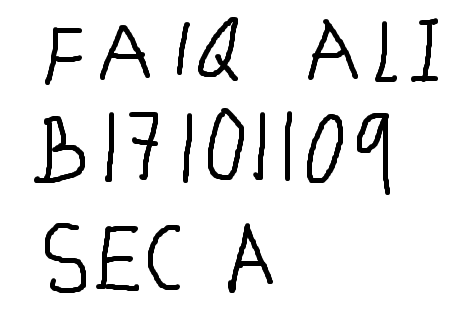 FAIQ ALI
B17101109
SEC A